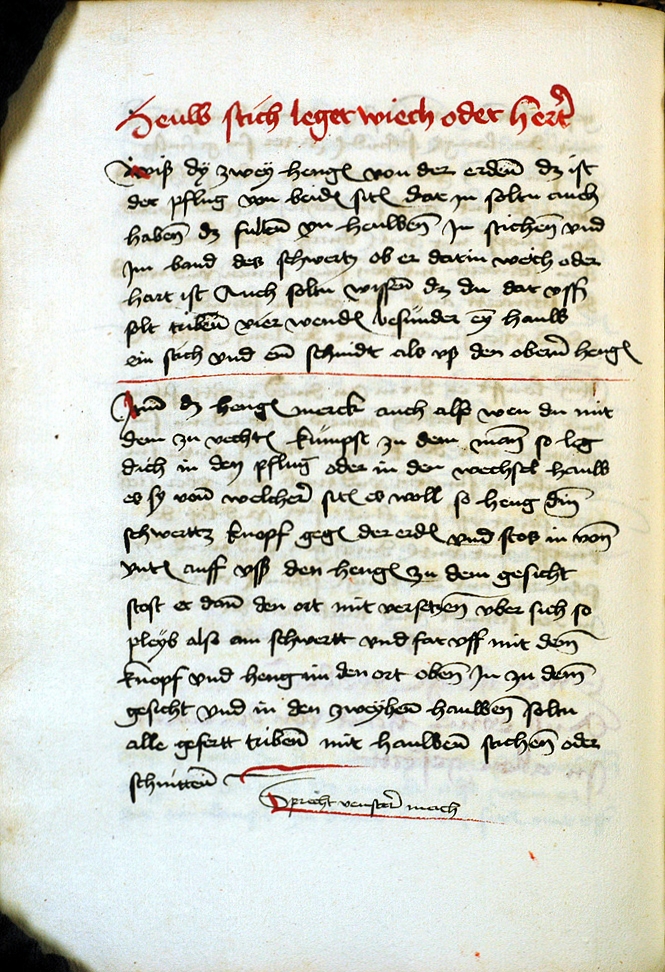 Heulb stich leger wiech oder hert
Wiß dy zwey heng von der erden dz ist
der pflug von beiden siten dar in soltu auch
haben dz fullen yn heulben In stichen vnd
Im band des schwertz ob er darin weich oder
hart ist Auch soltu wissen dz du dar vß
solt triben vier wend besunder ey haulb
ein stich vnd ein schnidt als vß den obern heng
Item dz heng merck auch also wen du mit
dem zu vechten kumpst zu dem man so leg
dich in den pflug oder in den wechsel haulb
es sy von welcher siten es woll so heng din
schwerttz knopf gegen der erden vnd stos in von
vnten auff vß den heng zu dem gesicht
stost er dan den ort mit versetzen vber sich so
pleyb also am schwertt vnd far vff mit dem
knopf vnd heng im den ort oben In zu dem
gesicht vnd in den zweyhen haulben soltu
alle gefertt triben mit haulben stichen oder
schnitten
Sprech venster mach